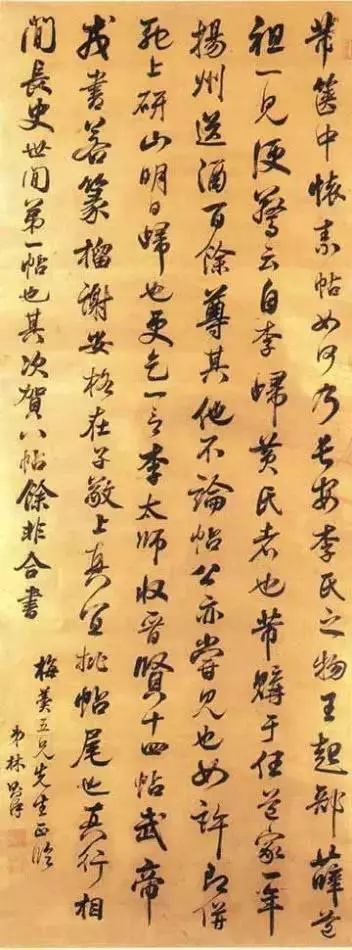 芾篋中懷素帖如何乃長安李氏之物王起部薛道
祖一見便驚云自李歸黃氏者也芾購于任道家一年
揚州送酒百餘尊其他不論帖公亦嘗見也如許即併
馳上研山明日歸也更乞一言李太師收晉賢十四帖武帝
戎書若篆籀謝安格在子敬上真宜批帖尾也真行相
間長史世間第一帖也其次賀八帖餘非合書
梅五兄先生正臨
弟林則徐